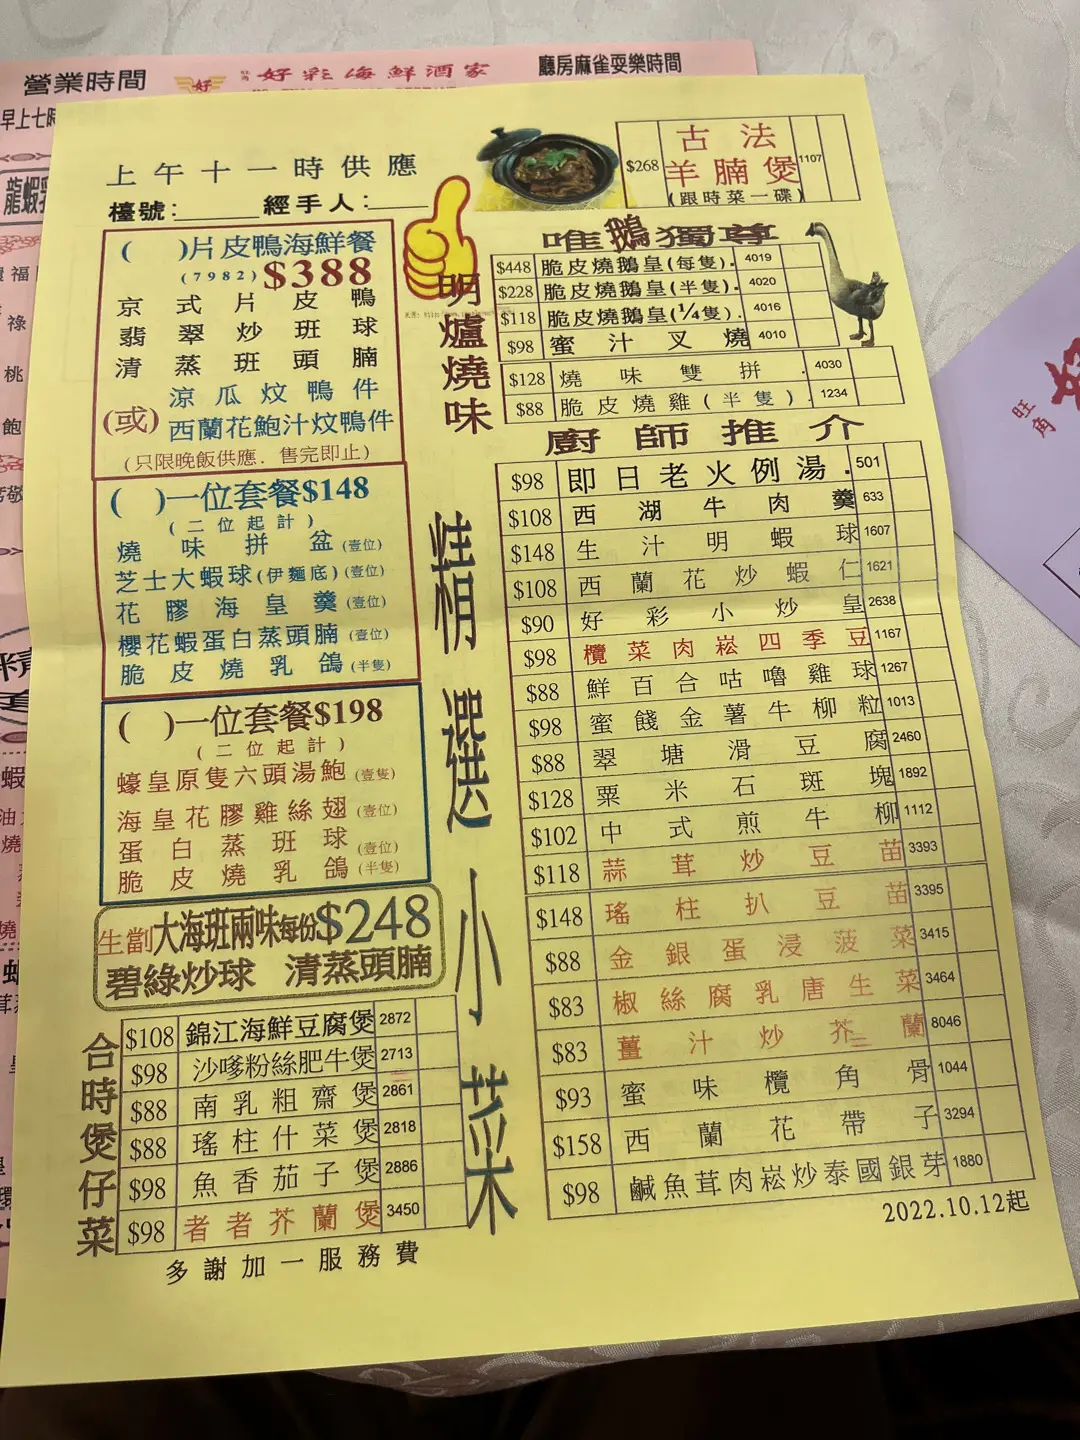 營業時間
好彩海鮮酒家
廳房麻雀耍樂時間
早上七時
龍蝦
上午十一時供應
檯號:______ 經手人:______
( )片皮鴨海鮮餐
(7982) $388
京式片皮鴨
翡翠炒班球
清蒸班頭腩
涼瓜炆鴨件
(或)
西蘭花鮑汁炆鴨件
(只限晚飯供應．售完即止)
( )一位套餐$148
(二位起計)
燒味拼盆(壹位)
芝士大蝦球(伊麵底)(壹位)
花膠海皇羹(壹位)
櫻花蝦蛋白蒸頭腩(壹位)
脆皮燒乳鴿(半隻)
( )一位套餐$198
(二位起計)
蠔皇原隻六頭湯鮑(壹隻)
海皇花膠雞絲翅(壹位)
蛋白蒸班球(壹位)
脆皮燒乳鴿(半隻)
生劏大海班兩味每份$248
碧綠炒球 清蒸頭腩
合時煲仔菜
$108 錦江海鮮豆腐煲 2872
$98 沙嗲粉絲肥牛煲 2713
$88 南乳粗齋煲 2861
$88 瑤柱什菜煲 2818
$98 魚香茄子煲 2886
$98 者者芥蘭煲 3450
多謝加一服務費
$268 古法羊腩煲 1107
(跟時菜一碟)
明爐燒味
唯鵝獨尊
$448 脆皮燒鵝皇(每隻). 4019
$228 脆皮燒鵝皇(半隻). 4020
$118 脆皮燒鵝皇(¼隻). 4016
$98 蜜汁叉燒 4010
$128 燒味雙拼. 4030
$88 脆皮燒雞(半隻). 1234
精選小菜
廚師推介
$98 即日老火例湯. 501
$108 西湖牛肉羹 633
$148 生汁明蝦球 1607
$108 西蘭花炒蝦仁 1621
$90 好彩小炒皇 2638
$98 欖菜肉崧四季豆 1167
$88 鮮百合咕嚕雞球 1267
$98 蜜餞金薯牛柳粒 1013
$88 翠塘滑豆腐 2460
$128 粟米石斑塊 1892
$102 中式煎牛柳 1112
$118 蒜茸炒豆苗 3393
$148 瑤柱扒豆苗 3395
$88 金銀蛋浸菠菜 3415
$83 椒絲腐乳唐生菜 3464
$83 薑汁炒芥蘭 8046
$93 蜜味欖角骨 1044
$158 西蘭花帶子 3294
$98 鹹魚茸肉崧炒泰國銀芽 1880
2022.10.12起
旺角